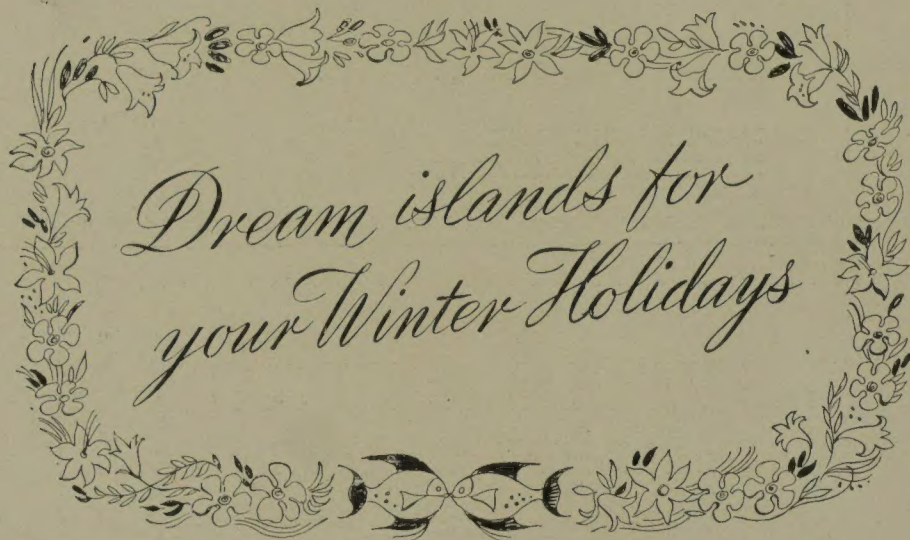 Dream islands for
your Winter Holidays